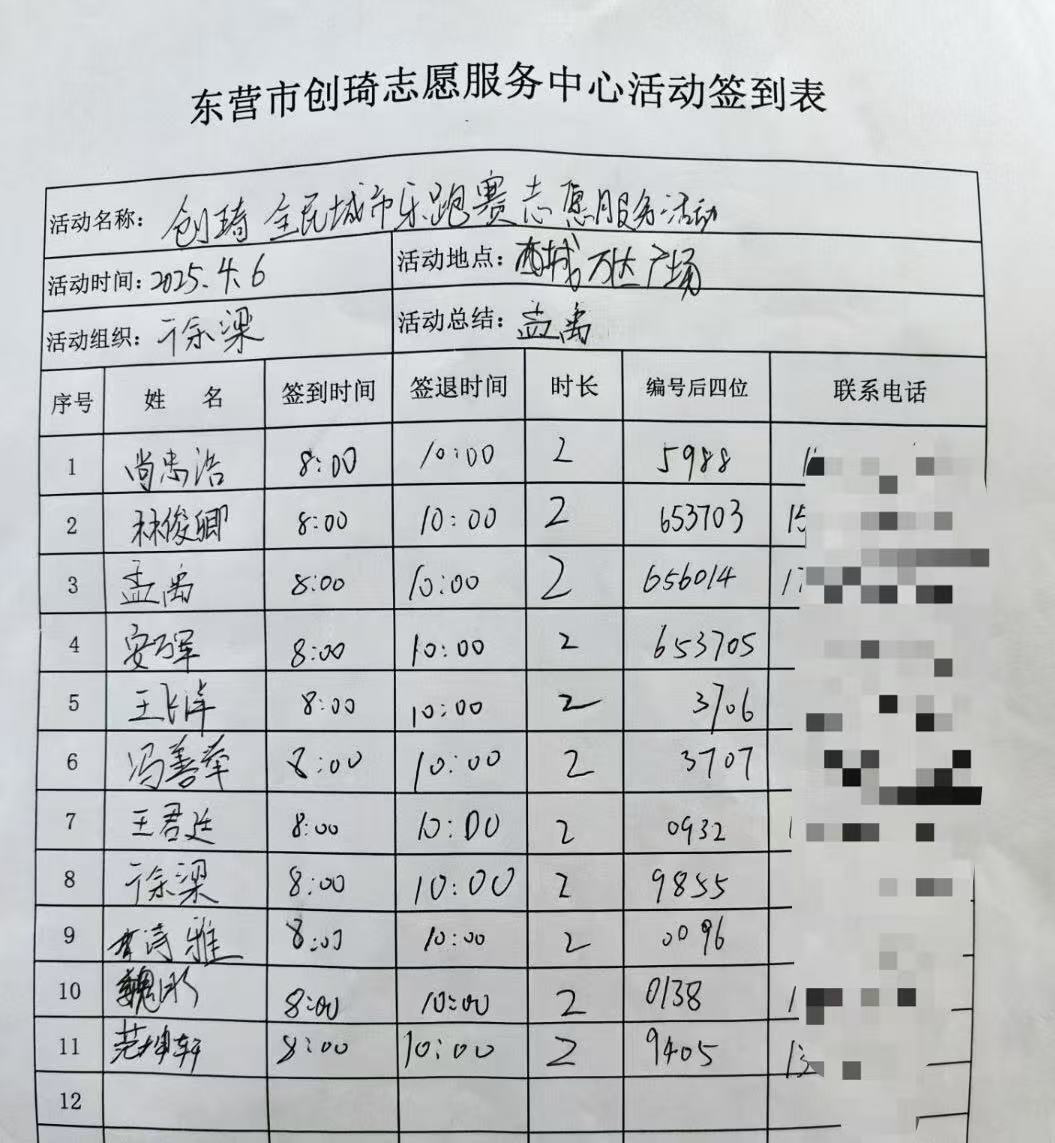 东营市创琦志愿服务中心活动签到表
活动名称: 创琦全民城市乐跑赛志愿服务活动
活动时间: 2025.4.6 活动地点: 西城万达广场
活动组织: 徐梁 活动总结: 孟禹
序号 姓 名 签到时间 签退时间 时长 编号后四位 联系电话
1 尚忠浩 8:00 10:00 2 5988
2 林俊卿 8:00 10:00 2 653703 15
3 孟禹 8:00 10:00 2 656014 17
4 安万军 8:00 10:00 2 653705
5 王飞洋 8:00 10:00 2 3706
6 冯善奉 8:00 10:00 2 3707
7 王君廷 8:00 10:00 2 0932 1
8 徐梁 8:00 10:00 2 9855
9 诗雅 8:00 10:00 2 0096
10 魏彤 8:00 10:00 2 0138 1
11 范坤轩 8:00 10:00 2 9405 13
12